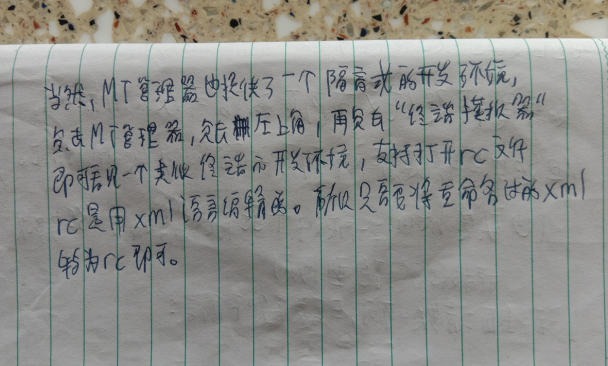 当然,MT管理器也提供了一个隔离式的开发环境,
点击MT管理器,点击左上角,再点击“终端模拟器”
即可看见一个类似终端的开发环境,支持打开rc文件
rc是用xml语言编辑的。所以只需要将重命名过的xml
转为rc即可。